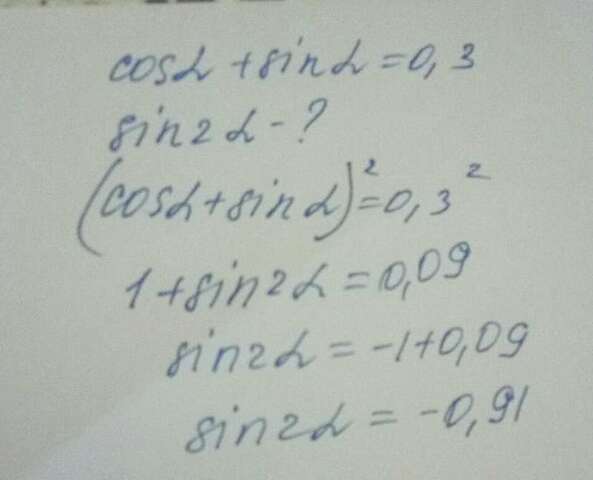 cosα + sinα = 0,3
sin2α - ?
(cosα + sinα)² = 0,3²
1 + sin2α = 0,09
sin2α = -1+0,09
sin2α = -0,91